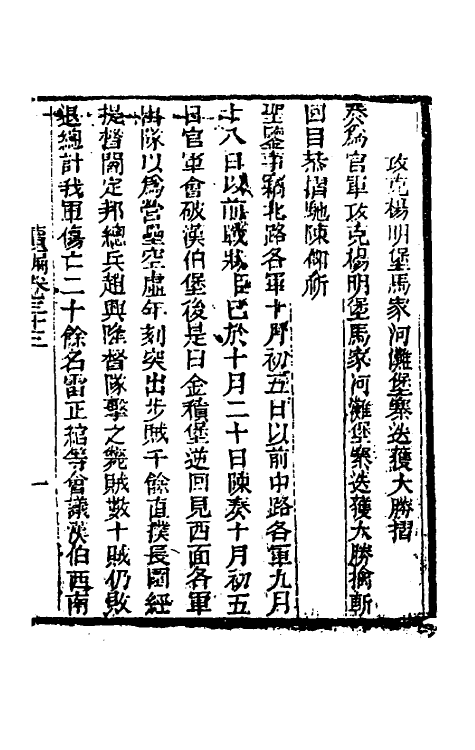 攻克楊明堡馬家河灘堡寨迭獲大勝摺
奏爲官軍攻克楊明堡馬家河灘堡寨迭獲大勝擒斬
回目恭摺馳陳仰祈
聖鑒事竊北路各軍十月初五日以前中路各軍九月
十八日以前戰狀臣已於十月二十日陳奏十月初五
日官軍會破漢伯堡後是日金積堡逆回見西面各軍
出隊以爲營壘空虛午刻突出步賊千餘直撲長圍經
提督閻定邦總兵趙興隆督隊擊之斃賊數十賊仍敗
退總計我軍傷亡二十餘名雷正綰等會議漢伯西南
續編卷三十三
一